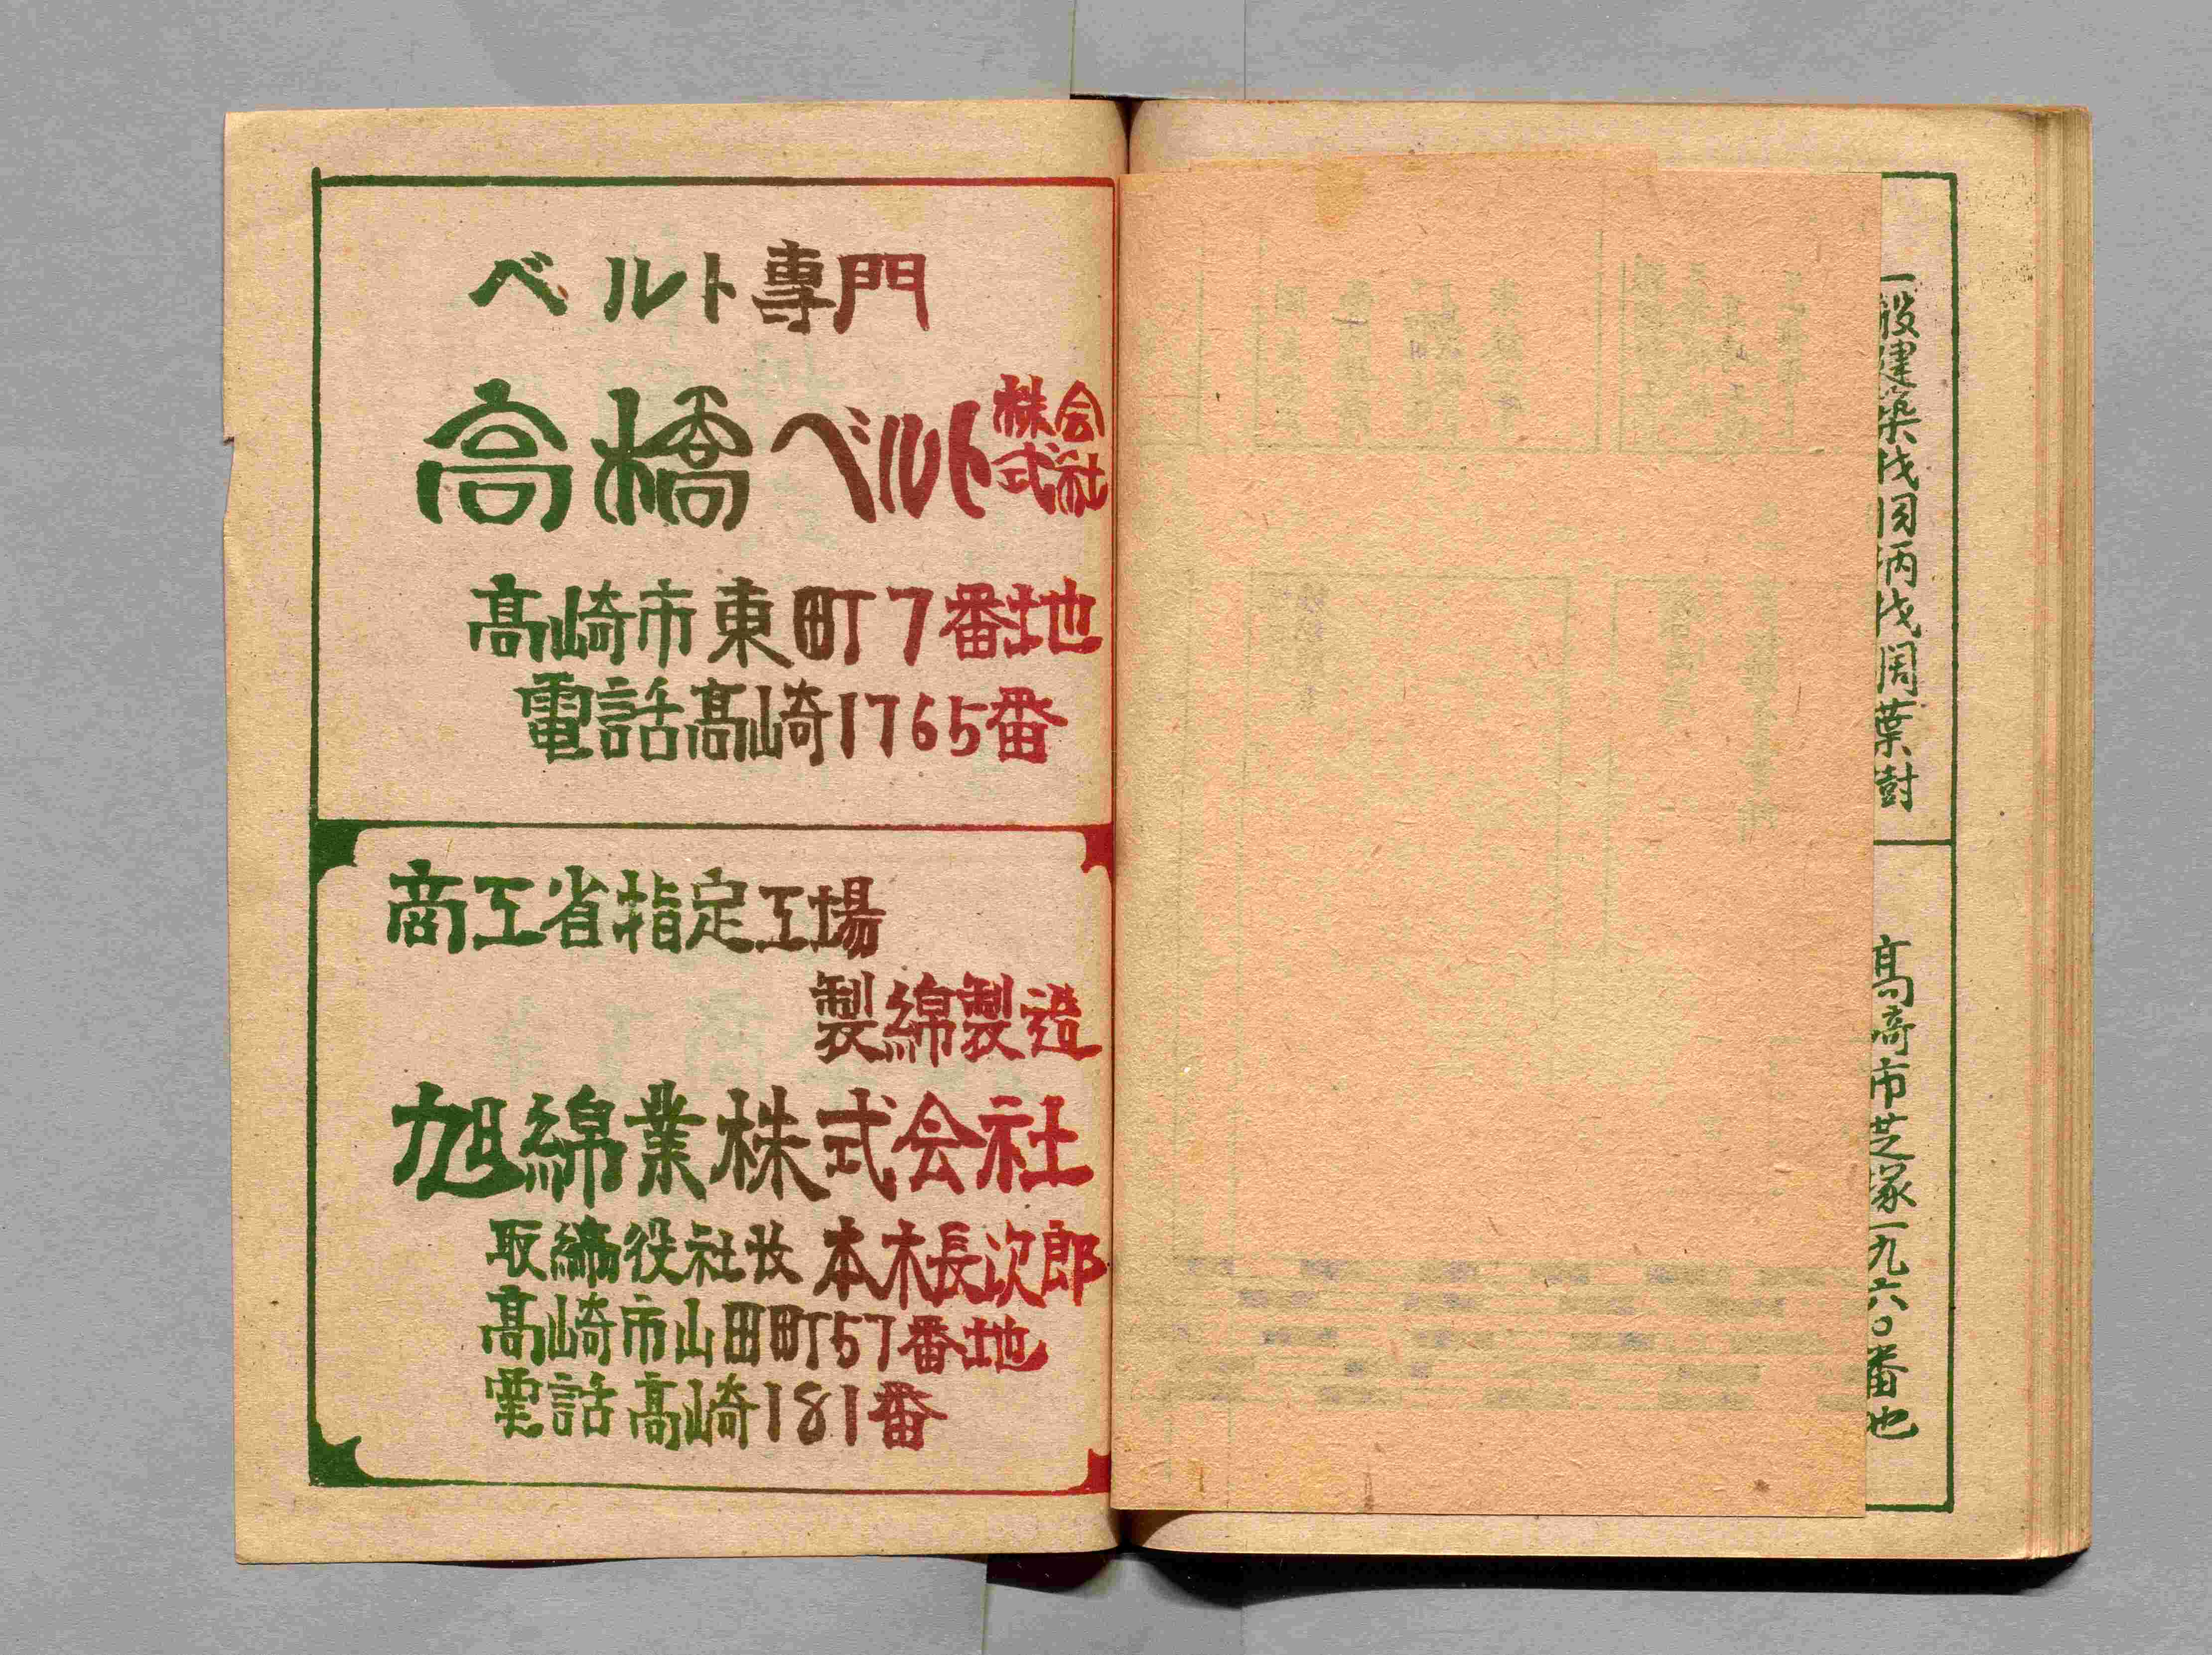 ベルト専門
高橋ベルト株式会社
髙崎市東町7番地
電話髙崎1765番
商工省指定工場
製綿製造
旭綿業株式会社
取締役社長 本木長次郎
髙崎市山田町57番地
電話髙崎181番
一般建築
葉樹
髙崎市芝塚一九六〇番地